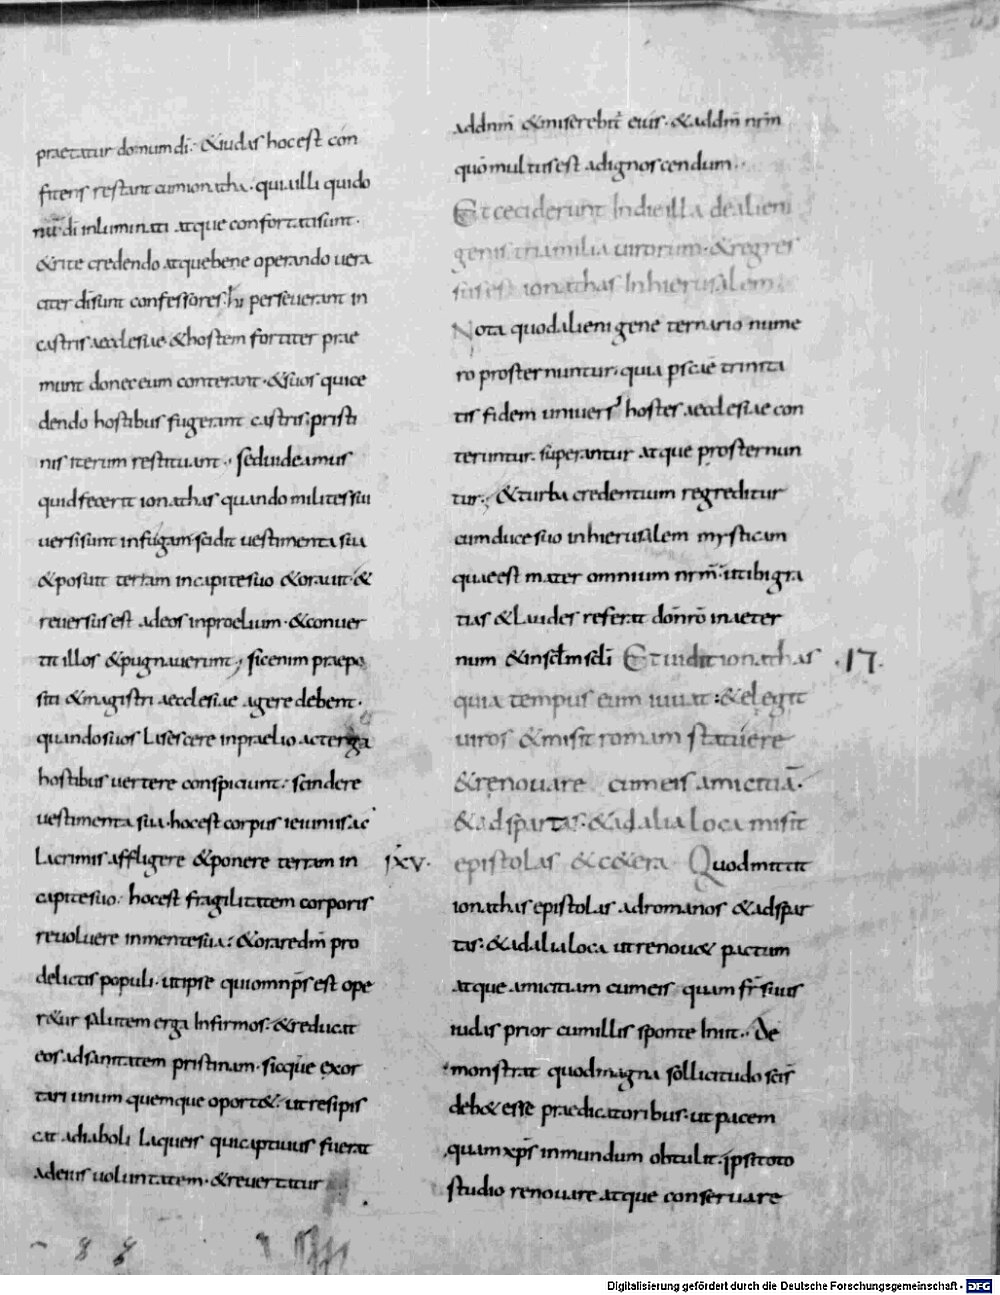 praetatur domum di: &iudas hoc est con
fitens restant cum ionatha. qui illi quidō
nū di inluminati atque confortati sunt.
& rite credendo atque bene operando uera
citer di sunt confessores. hi perseuerant in
castris aecclesiae & hostem fortiter prae
munt donec eum conterant. & suos qui ce
dendo hostibus fugerant castris pristi
nis iterum restituant. sed uideamus
quid fecerit ionathas quando milites sui
uersi sunt in fugam. scidit uestimenta sua
& posuit terram in capite suo & orauit. &
reuersus est ad eos in proelium. & conuer
tit illos & pugnauerunt; sic enim praepo
siti & magistri aecclesiae agere debent.
quando suos lasescere in praelio ac terga
hostibus uertere conspiciunt: scindere
uestimenta sua. hoc est corpus ieiuniis ac
lacrimis affligere & ponere terram in
capite suo. hoc est fragilitatem corporis
reuoluere in mente sua: & orare dm̄ pro
delictis populi. ut ipse qui omnps̄ est ope
r&ur salutem erga infirmos. & reducat
eos ad sanitatem pristinam. sicque exor
tari unum quemque oport&. ut resipis
cat a diaboli laqueis qui captiuus fuerat
ad eius uoluntatem. & reuertatur
ad dnm̄ & miserebit̄ eius. & ad dm̄ nrm̄
quō multus est ad ignoscendum.
Et ceciderunt In die illa de alieni
genis tria milia uirorum. & regres
sus est ionathas In hierusalem
Nota quod alienigene ternario nume
ro prosternuntur. quia p scāē trinita
tis fidem uniuersi hostes aecclesiae con
teruntur. superantur atque prosternun
tur; & turba credentium regreditur
cum duce suo in hierusalem mysticam
quae est mater omnium nrm̄. ut ibi gra
tias & laudes referat dōn̄ro in aeter
num & in sc̄lm sc̄li Et uidit ionathas .17.
quia tempus eum iuuat: & elegit
uiros & misit romam statuere
& renouare cum eis amicitiā.
& ad spartas. & ad alia loca misit
jxv. epistolas & c&era Quod mittit
ionathas epistolas ad romanos & ad spar
tas. & ad alia loca ut renou& pactum
atque amicitiam cum eis quam fr̄ suus
iudas prior cum illis sponte Iniit. de
monstrat quod magna sollicitudo scīs
deb& esse praedicatoribus. ut pacem
quam xps̄ in mundum obtulit. ipsi toto
studio renouare atque conseruare
Digitalisierung gefördert durch die Deutsche Forschungsgemeinschaft - DFG